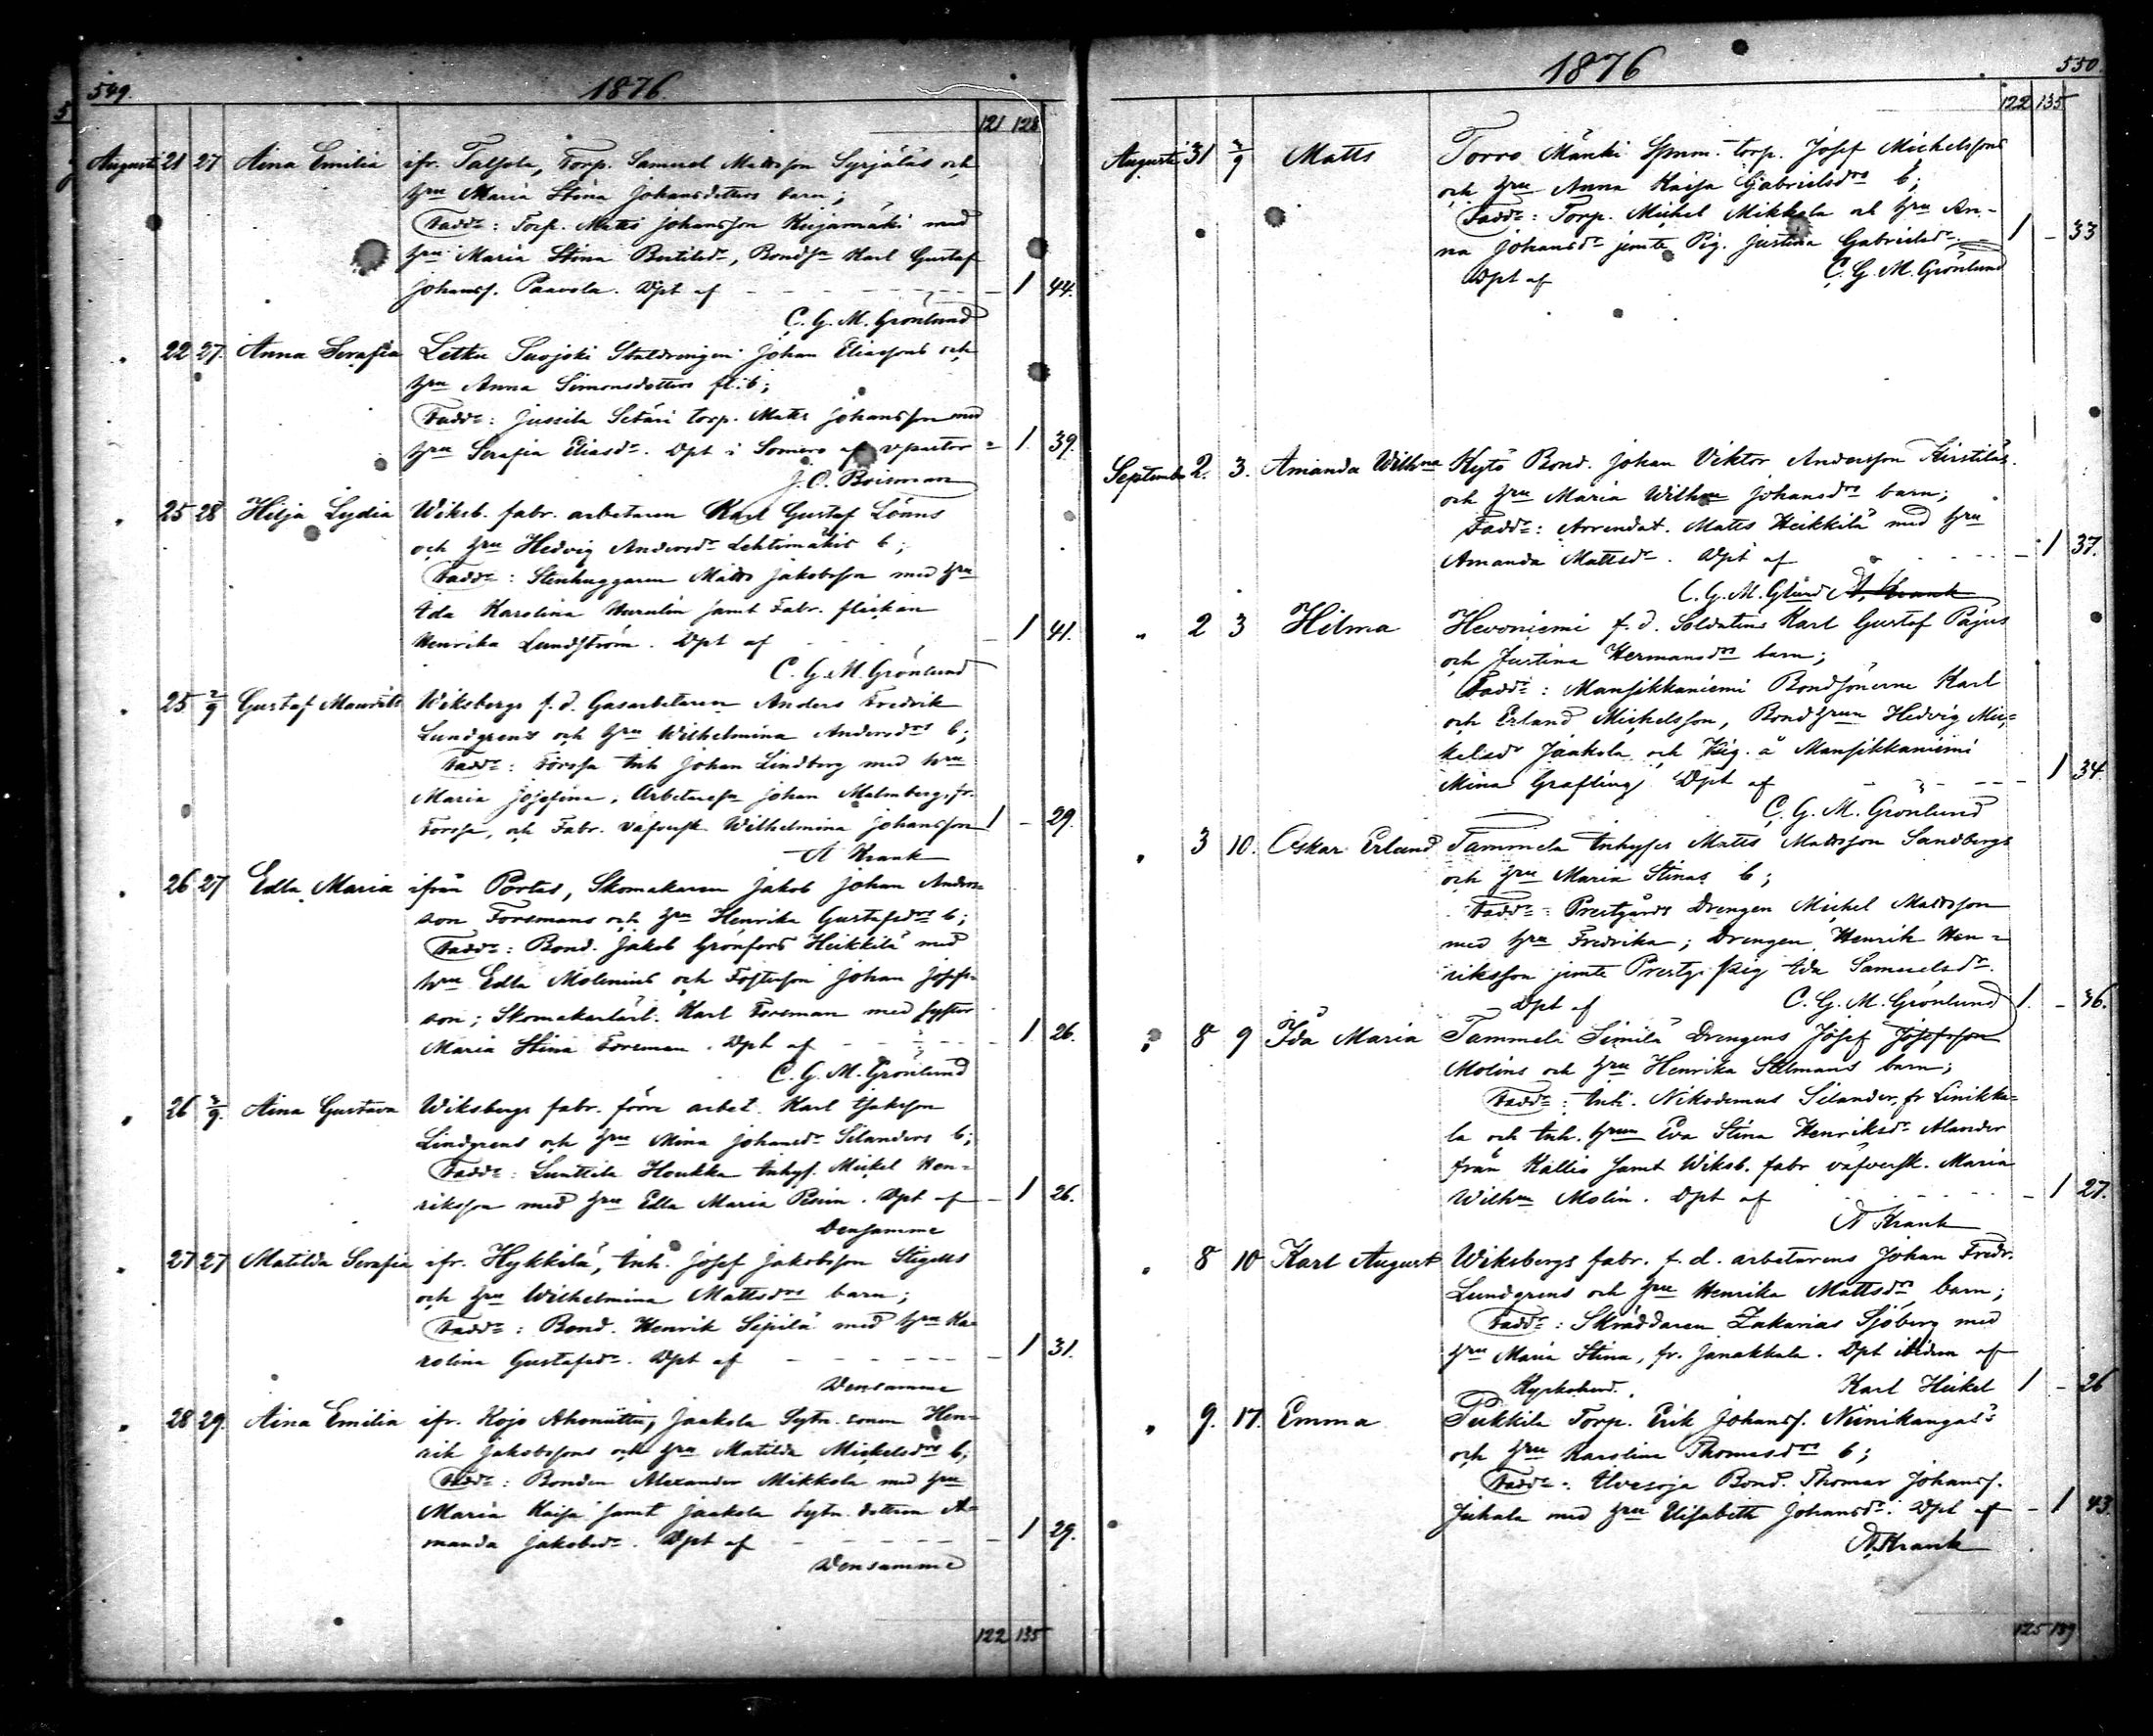 549. 1876.
121 128
Augusti 21 27 Aina Emilia ifr. Talsola, Torp. Samuel Mattsson Syrjäläs och
hru Maria Stina Johansdotters barn;
Faddr: Torp. Matts Johansson Kujamäki med
hru Maria Stina Bertilsdr, Bondsn Karl Gustaf
Johanss. Paavola. Dpt af - - - - 1 44.
C. G. M. Grönlund
" 22 27. Anna Serafia Letku Suojoki Staldrengen Johan Eliassons och
hru Anna Simonsdotters fl. b;
Faddr: Jussila Setäri torp. Matts Johansson med
hru Serafia Eliasdr. Dpt i Somero af vpastor - 1. 39.
J. O. Boisman
" 25 28 Hilja Lydia Wiksb. fabr. arbetaren Karl Gustaf Lönns
och hru Hedvig Andersdr Lehtimäkis b;
Faddr: Stenhuggaren Matts Jakobsson med hru
Ida Karolina samt Fabr. flickan
Henrika Lundström. Dpt af - - - 1 41.
C. G. M. Grönlund
" 25 2/9 Gustaf Maurits Wiksbergs f. d. Gasarbetaren Anders Fredrik
Lundgrens och hru Wilhelmina Andersdrs b;
Faddr: Forssa Inh Johan Lindberg med hru
Maria Josefina, Arbetaresn Johan Malmberg, fr.
Forssa, och Fabr. väfversk. Wilhelmina Johansson 1 - 29.
A Krank
" 26 27 Edla Maria ifrån Portas, Skomakaren Jakob Johan Anders-
son Forsmans och hru Henrika Gustafsdrs b;
Faddr: Bond. Jakob Grönfors Heikkilä med
hru Edla Molenius och Fosterson Johan Josefs-
son; Skomakarlärl. Karl Forsman med syster
Maria Stina Forsman. Dpt af - - - - 1. 26.
C. G. M. Grönlund
" 26 3/9. Aina Gustava Wiksbergs fabr. förre arbet. Karl Isaksson
Lindgrens och hru Mina Johansdr Silanders b;
Faddr: Lunttila Houkka Inhys. Mickel Hen-
riksson med hru Edla Maria . Dpt af - 1 26.
Densamme
" 27 27 Matilda Serafia ifr. Hykkilä, Inh. Josef Jakobsson Stigells
och hru Wilhelmina Mattsdrs barn;
Faddr: Bond. Henrik Sipilä med hru Ka-
rolina Gustafsdr. Dpt af - - - - - 1 31.
Densamme
" 28 29. Aina Emilia ifr. Kojo Ahoniittu, Jaakola Sytn. sonen Hen-
rik Jakobssons och hru Matilda Mickelsdrs b;
Faddr: Bonden Alexander Mikkola med hru
Maria Kaisa samt Jaakola Sytn. dottern A-
manda Jakobsdr. Dpt af - - - - - 1 29.
Densamme
122 135
1876 550.
122 135
Augusti 31 3/9 Matts Torro Mänki Spnm. torp. Josef Michelssons
och hru Anna Kaisa Gabrielsdrs b;
Faddr: Torp. Michel Mikkola och hru An-
na Johansdr jemte Pig. Justina Gabrielsdr. 1 - 33
Dpt af C. G. M. Grönlund
September 2. 3. Amanda Wilhna Kytö Bond. Johan Viktor Andersson Airstiläs
och hru Maria Wilhna Johansdrs barn;
Faddr: Arrendat. Matts Heikkilä med hru
Amanda Mattsdr. Dpt af - - - 1 37.
C. G. M. Glund A. Krank
" 2 3 Hilma Hevoniemi f. d. Soldatens Karl Gustaf Pajus
och Justina Hermansdrs barn;
Faddr: Mansikkaniemi Bondsönerne Karl
och Erland Michelsson, Bondhrun Hedvig Mic-
kelsdr Jaakola och Pig. å Mansikkaniemi
Mina Grafling. Dpt af - - - 1 34.
C. G. M. Grönlund
" 3 10. Oskar Erland Tammela Inhyses Matts Mattsson Sandbergs
och hru Maria Stinas b;
Faddr: Prestgårds Drengen Michel Mattsson
med hru Fredrika; Drengen Henrik Hen-
riksson jemte Prestg. pig Ida Samuelsdr.
Dpt af C. G. M. Grönlund 1. - 36.
" 8 9 Ida Maria Tammela Simila Drengens Josef Josefsson
Molins och hru Henrika Salmans barn;
Faddr: Inh. Nikodemus Silander, fr Linikka-
la och Inh. hrun Eva Stina Henriksdr Alander
från Kallio samt Wiksb. fabr väfversk. Maria
Wilhna Molin. Dpt af - - - 1 27.
A Krank
" 8 10 Karl August Wiksbergs fabr. f. d. arbetarens Johan Fredr.
Lundgrens och hru Henrika Mattsdrs barn;
Faddr: Skräddaren Zakarias Sjöberg med
hru Maria Stina, fr. Janakkala. Dpt ibidem af
Kyrkoherd. Karl Heikel 1 - 26
" 9. 17. Emma Pekkila Torp. Erik Johanss. Niinikangas's
och hru Karolina Thomasdrs b;
Faddr: Bond. Thomas Johanss.
Juhala med hru Elisabeth Johansdr. Dpt af - 1 43.
A. Krank
125 139